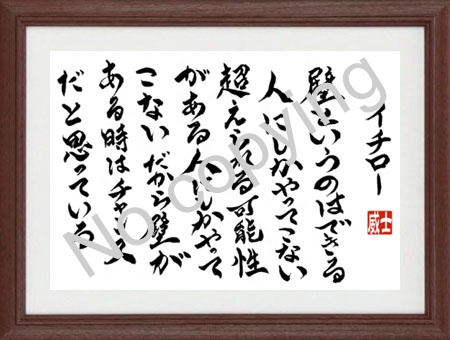 イチロー
壁というのはできる
人にしかやってこない
超えられる可能性
がある人にしかやって
こない だから壁が
ある時はチャンス
だと思っている
威士
No copying